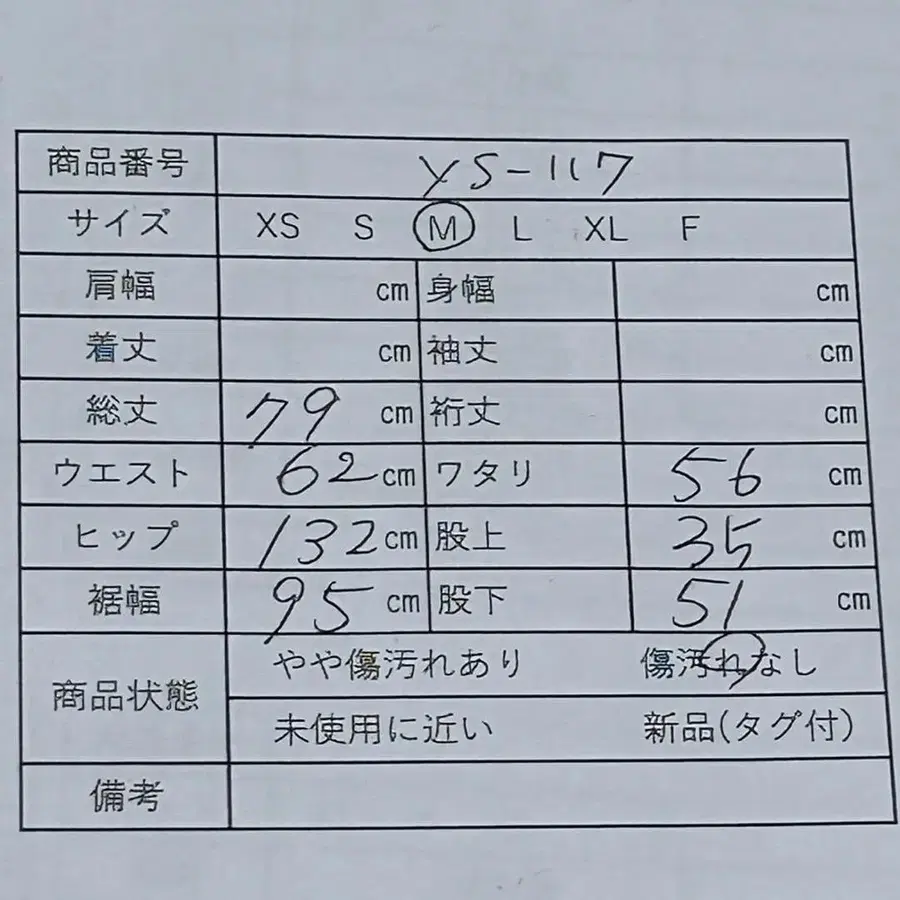 商品番号 YS-117
サイズ XS S M L XL F
肩幅 cm 身幅 cm
着丈 cm 袖丈 cm
総丈 79 cm 裄丈 cm
ウエスト 62 cm ワタリ 56 cm
ヒップ 132 cm 股上 35 cm
裾幅 95 cm 股下 51 cm
やや傷汚れあり 傷汚れなし
商品状態
未使用に近い 新品(タグ付)
備考